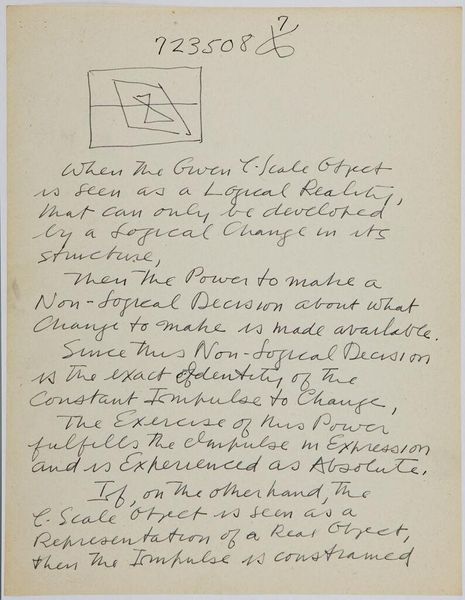 7
723508
When the Given C-Scale Object
is seen as a Logical Reality,
that can only be developed
by a Logical Change in its
structure,
Then the Power to make a
Non-Logical Decision about what
Change to make is made available.
Since this Non-Logical Decision
is the exact Identity of the
Constant Impulse to Change,
The Exercise of this Power
fulfills the Impulse in Expression
and is Experienced as Absolute.
If, on the other hand, the
C-Scale Object is seen as a
Representation of a Real Object,
then the Impulse is constrained